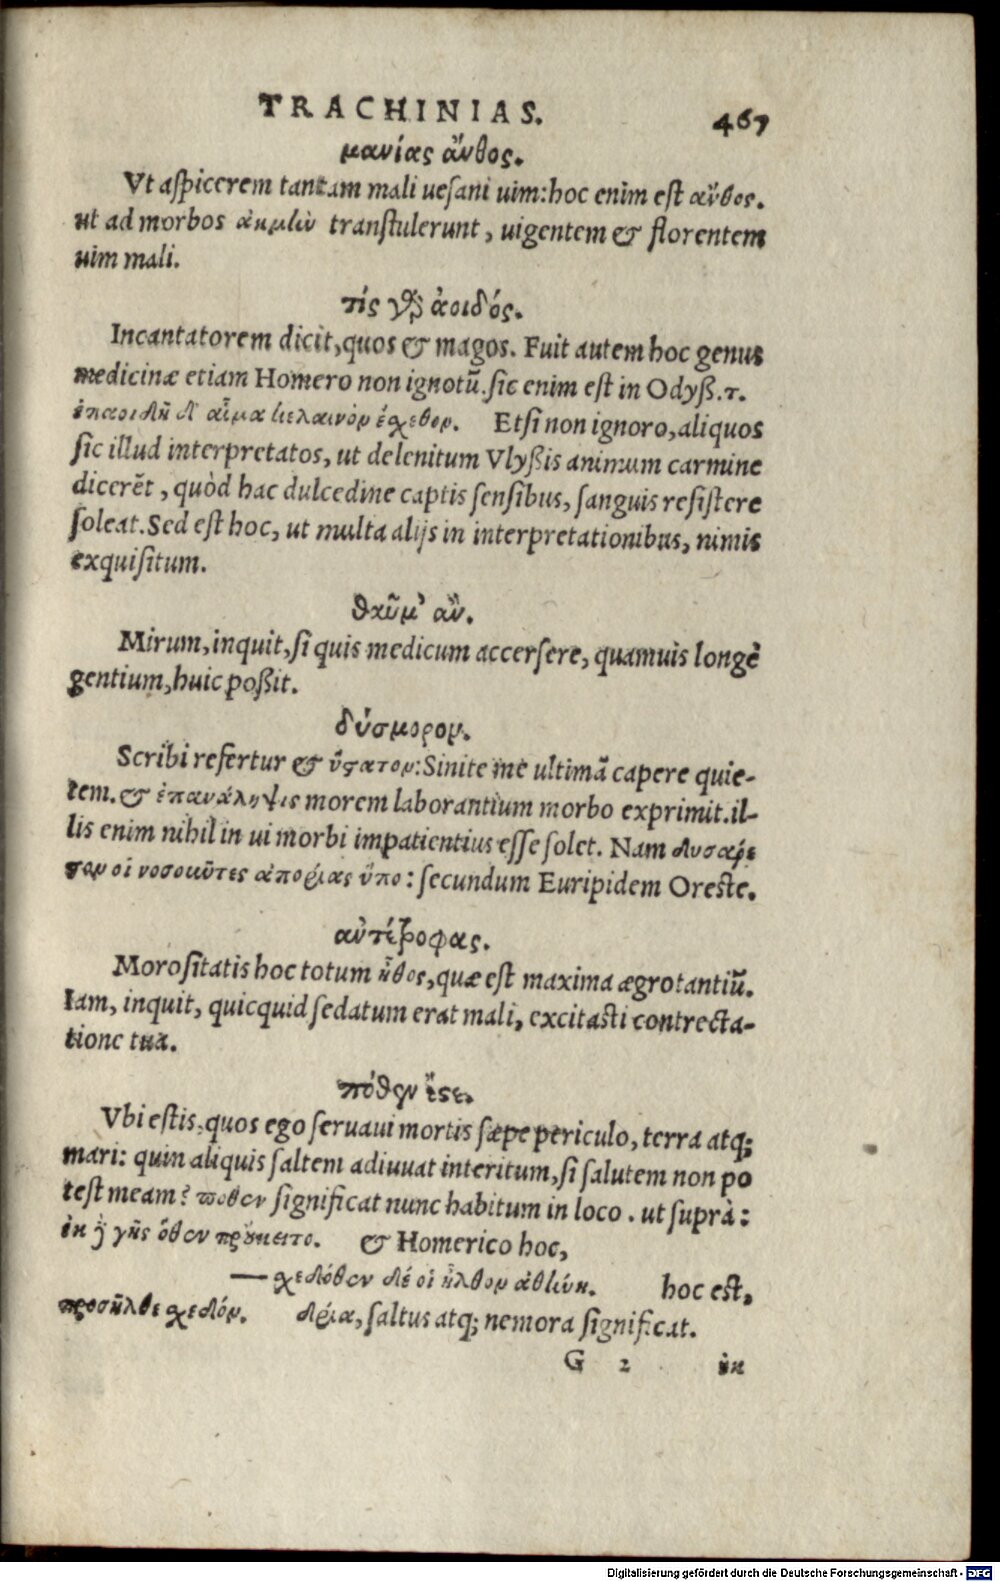 TRACHINIAS. 467
μανίας ἄνθος.
Vt aſpicerem tantam mali ueſani uim: hoc enim eſt ἄνθος.
ut ad morbos ἀκμὴν tranſtulerunt, uigentem & florentem
uim mali.
τίς γὰρ ἀοιδός.
Incantatorem dicit, quos & magos. Fuit autem hoc genus
medicinæ etiam Homero non ignotũ. ſic enim eſt in Odyß. τ.
ἐπαοιδῇ δ' αἷμα κελαινὸν ἔσχεθον. Etſi non ignoro, aliquos
ſic illud interpretatos, ut delenitum Vlyßis animum carmine
dicerẽt, quòd hac dulcedine captis ſenſibus, ſanguis reſiſtere
ſoleat. Sed eſt hoc, ut multa alijs in interpretationibus, nimis
exquiſitum.
θαῦμ' ἂν.
Mirum, inquit, ſi quis medicum accerſere, quamuis longè
gentium, huic poßit.
δύσμορον.
Scribi refertur & ὕστατον: Sinite me ultimã capere quie-
tem. & ἐπανάληψις morem laborantium morbo exprimit. il-
lis enim nihil in ui morbi impatientius eſſe ſolet. Nam δυσάρε
στον οἱ νοσοῦντες ἀπορίας ὕπο: ſecundum Euripidem Oreſte.
ἀντέτροφας.
Moroſitatis hoc totum ἦθος, quæ eſt maxima ægrotantiũ.
Iam, inquit, quicquid ſedatum erat mali, excitaſti contrecta-
tione tua.
πόθεν ἔστε.
Vbi eſtis, quos ego ſeruaui mortis ſæpe periculo, terra atq;
mari: quin aliquis ſaltem adiuuat interitum, ſi ſalutem non po
teſt meam? πόθεν ſignificat nunc habitum in loco. ut ſuprà:
ἐκ γῆς ὅθεν προὔκειτο. & Homerico hoc,
— σχεδόθεν δέ οἱ ἦλθον ἀθήνη. hoc eſt,
προσῆλθε σχεδόν. δρία, ſaltus atq; nemora ſignificat.
G 2 ἐκ
Digitalisierung gefördert durch die Deutsche Forschungsgemeinschaft - DFG